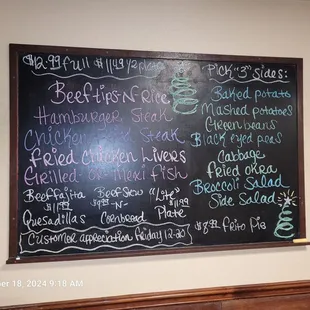 $12.99 full $11.49 1/2 plate
Beef tips-N-Rice
Hamburger Steak
Chicken Steak
Fried Chicken Livers
Grilled- or mexi fish
Beef fajita
$11.99
Quesadilla's
Beef Stew
$9.99 -N-
Cornbread
"Lite"
$11.99
Plate
Customer Appreciation Friday 12-20
Pick "3" sides:
Baked potato
Mashed potatoes
Green beans
Black eyed peas
Cabbage
Fried okra
Broccoli Salad
Side Salad
$8.99 Frito Pie
18, 2024 9:18 AM